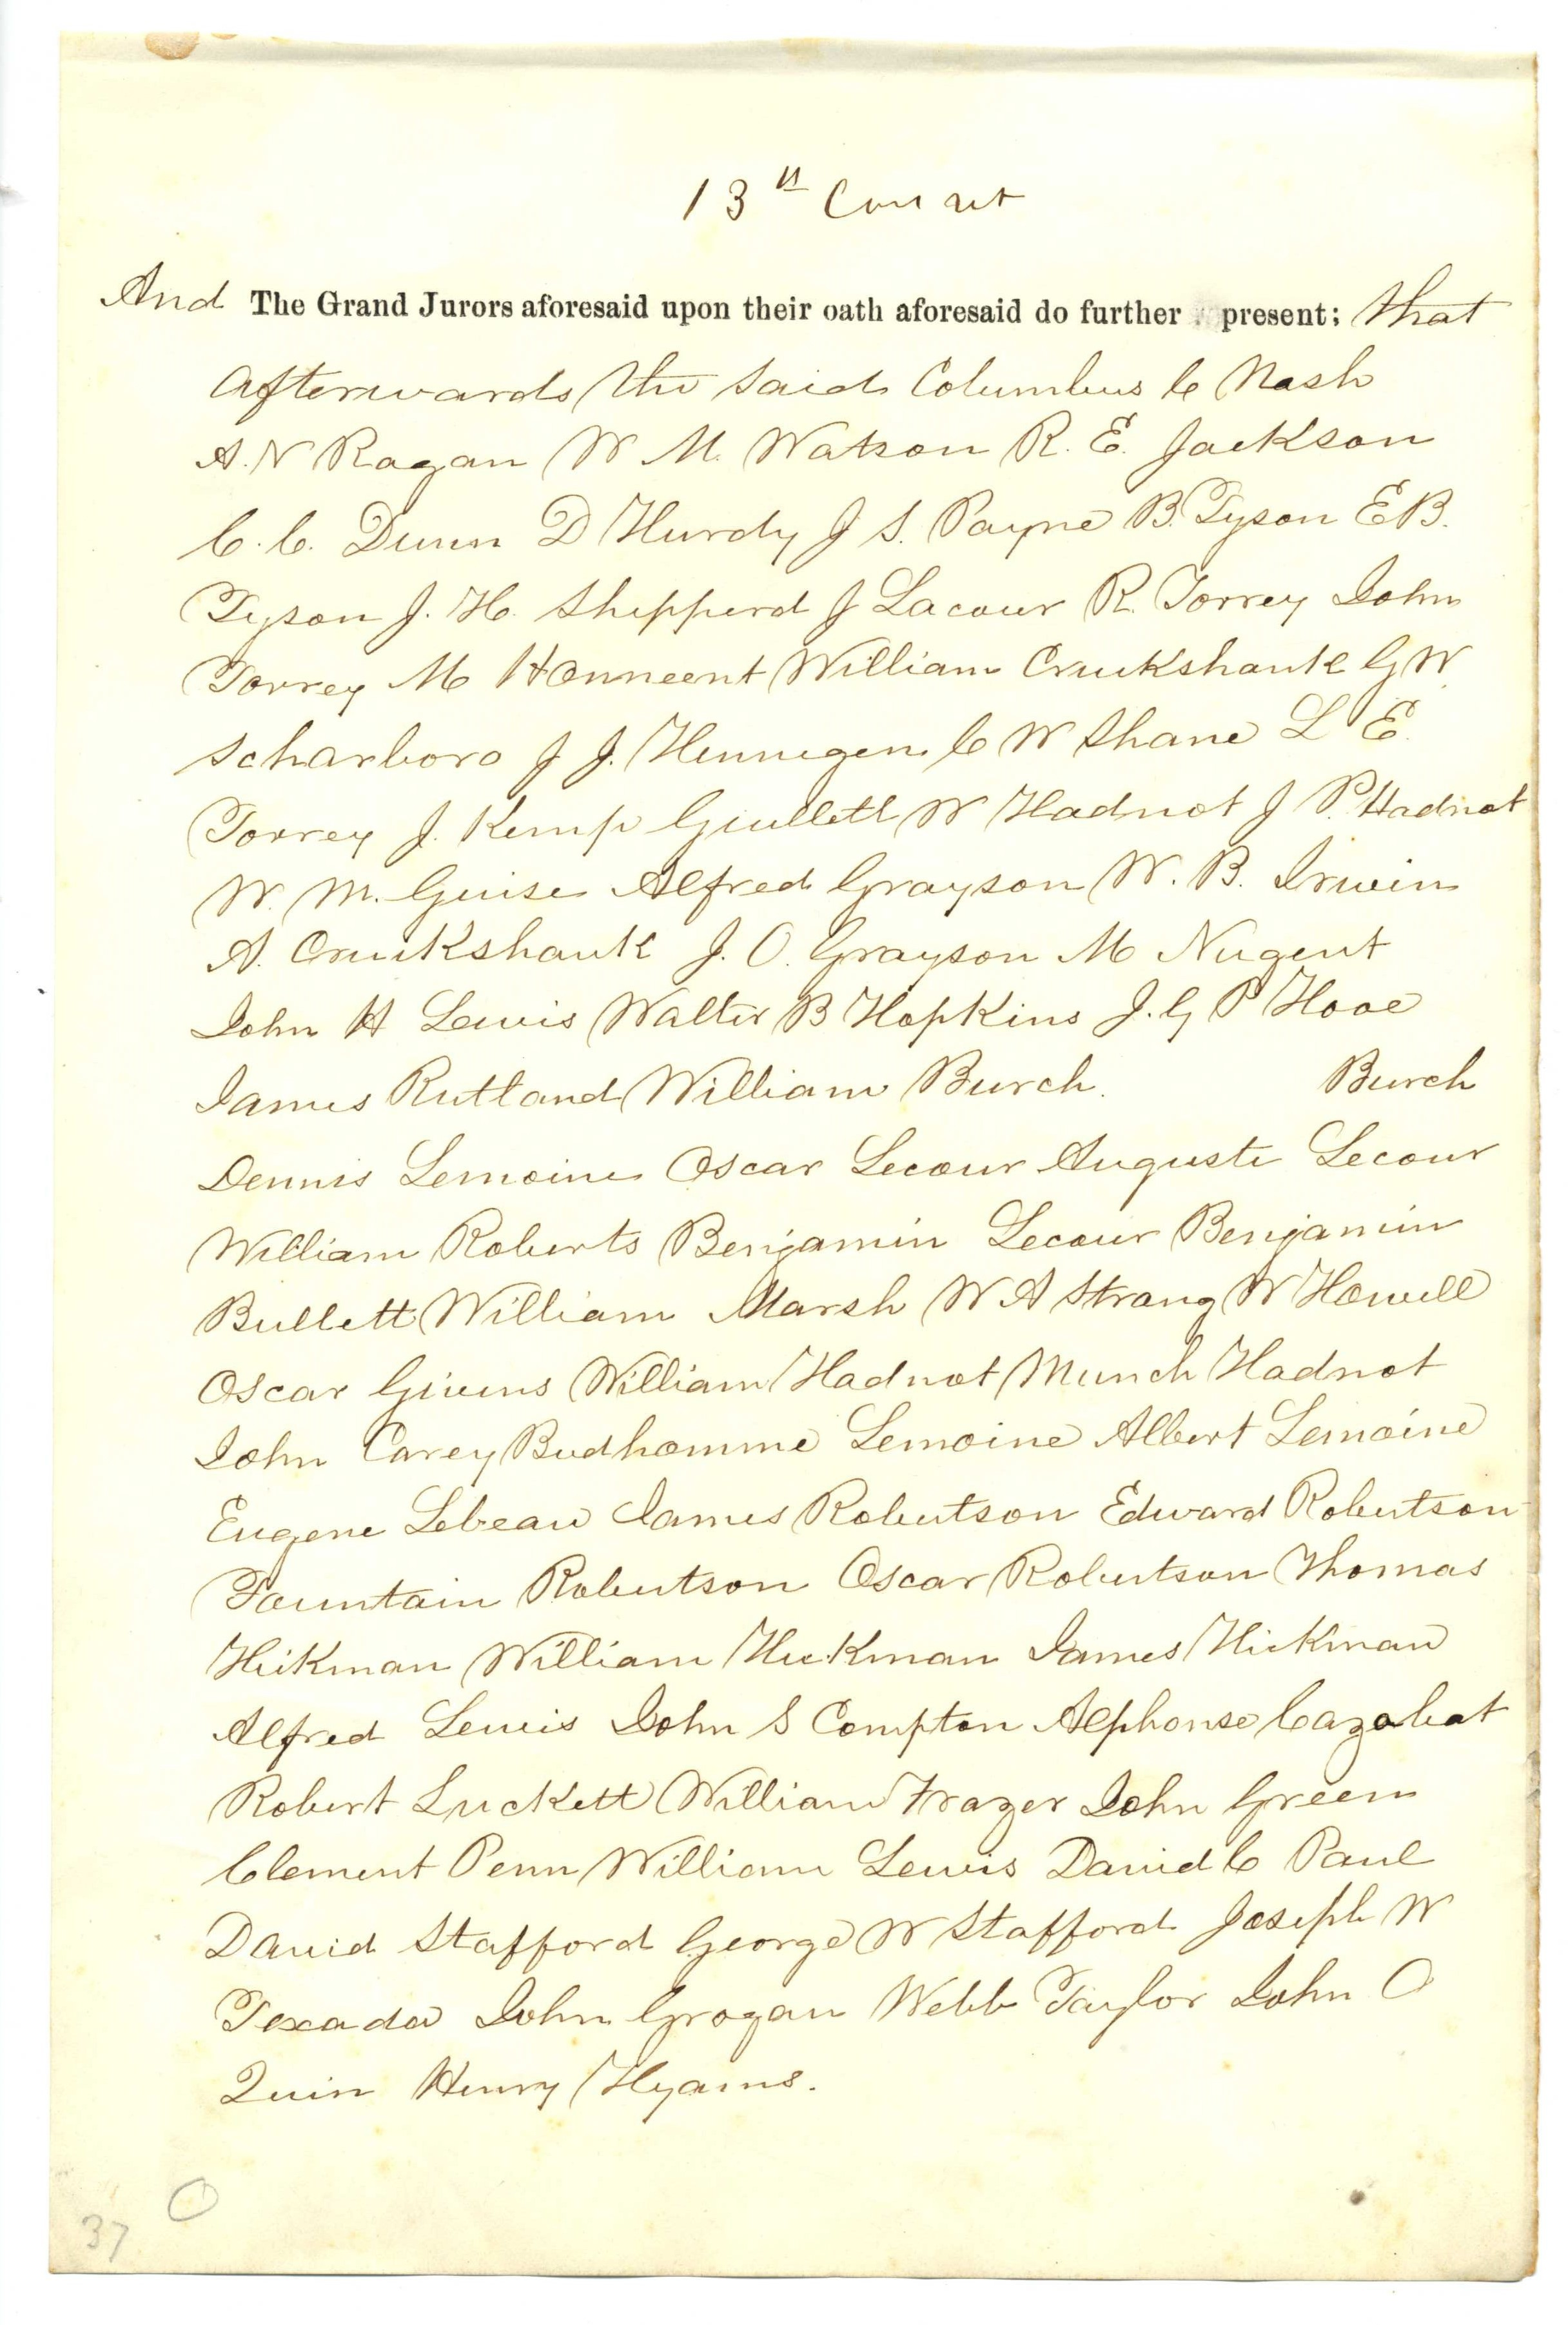 13th Count
And The Grand Jurors aforesaid upon their oath aforesaid do further present; that
afterwards the said Columbus C Nash
A. N Ragan W M. Watson R. E. Jackson
C. C. Dunn D Hurdy J S. Payne B. Tyson E B.
Tyson J. H. Shepperd J Lacour R. Torrey John
Torrey M William Cruikshank G W
Scharboro J J. Hennigen C W Shane L E.
Torrey J. Kemp Giullett W Hadnot J P. Hadnot
W. M. Guise Alfred Grayson W. B. Irwin
A. Cruikshank J. O. Grayson M Nugent
John H Lewis Walter B Hopkins J. G P Hooe
James Rutland William Burch. Burch
Dennis Lemoine Oscar Lecour Auguste Lecour
William Roberts Benjamin Lecour Benjamin
Bullett William Marsh W A Strong W Howell
Oscar Givens William Hadnot Munch Hadnot
John Carey Budhomme Lemoine Albert Lemoine
Eugene Lebeau James Robertson Edward Robertson
Fountain Robertson Oscar Robertson Thomas
Hickman William Hickman James Hickman
Alfred Lewis John S Compton Alphonse Cazabat
Robert Luckett William Frazer John Green
Clement Penn William Lewis David C Paul
David Stafford George W Stafford Joseph W
Texada John Grogan Webb Taylor John O
Quin Henry Hyams.
37